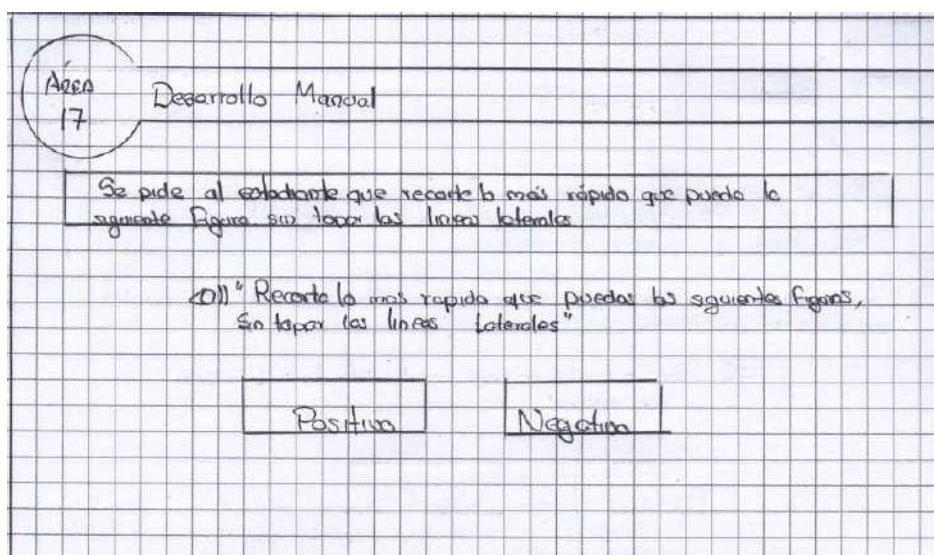 Área
17
Desarrollo Manual
Se pide al estudiante que recorte lo más rápido que pueda la
siguiente figura sin topar las líneas laterales
"Recorta lo mas rapido que puedas las siguientes figuras,
sin topar las lineas laterales"
Positivo
Negativo